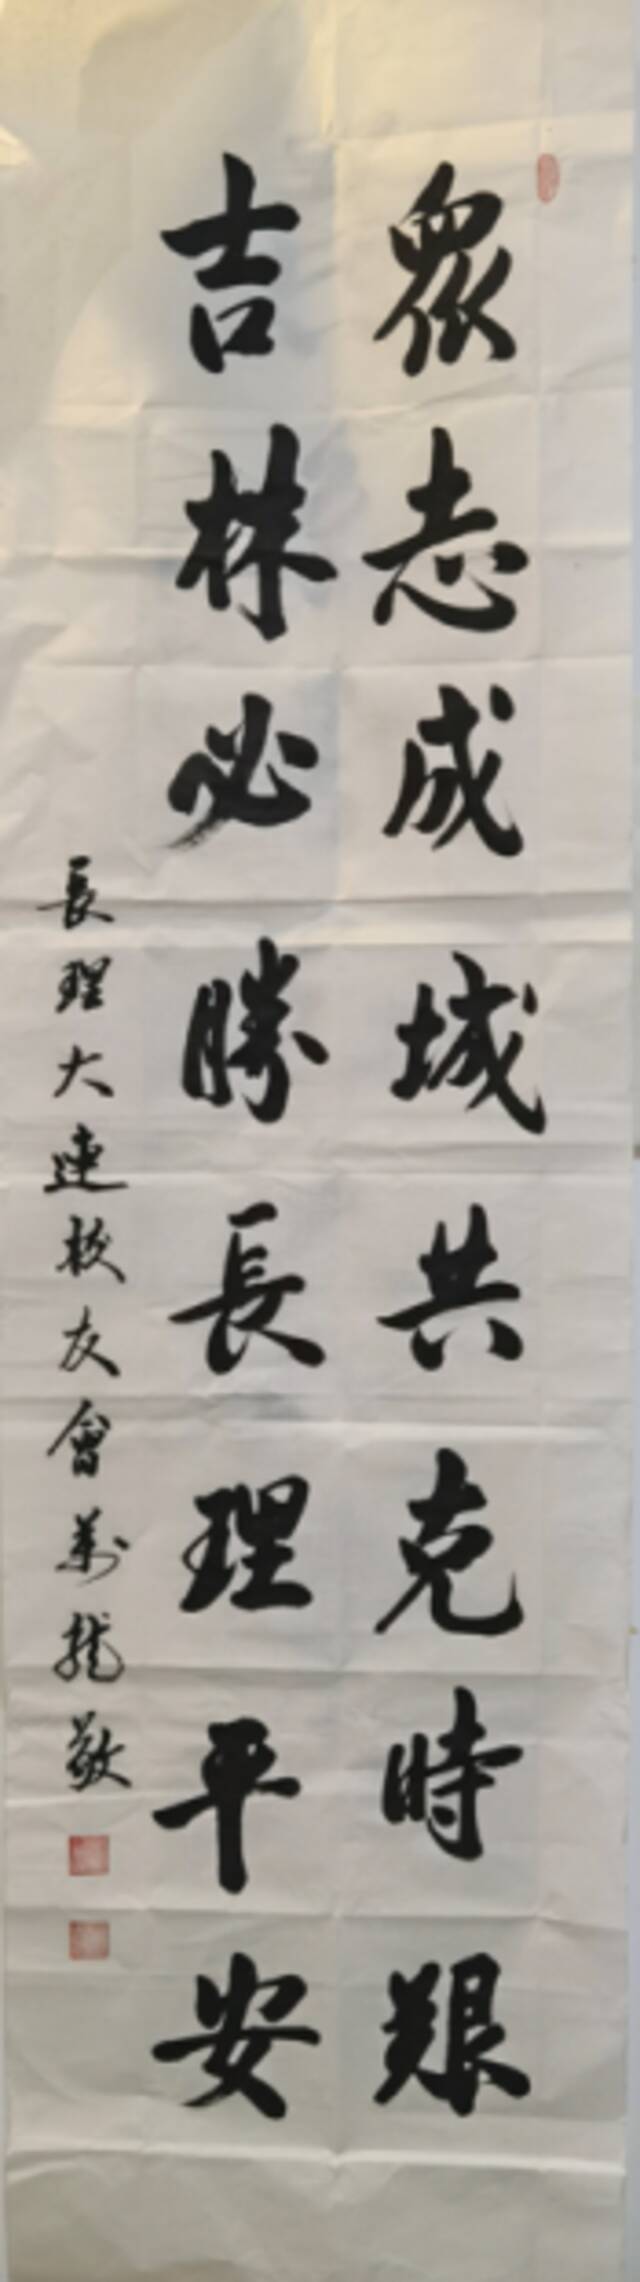 眾志成城共克時艱
吉林必勝長理平安
長理大連校友會萬龍敬